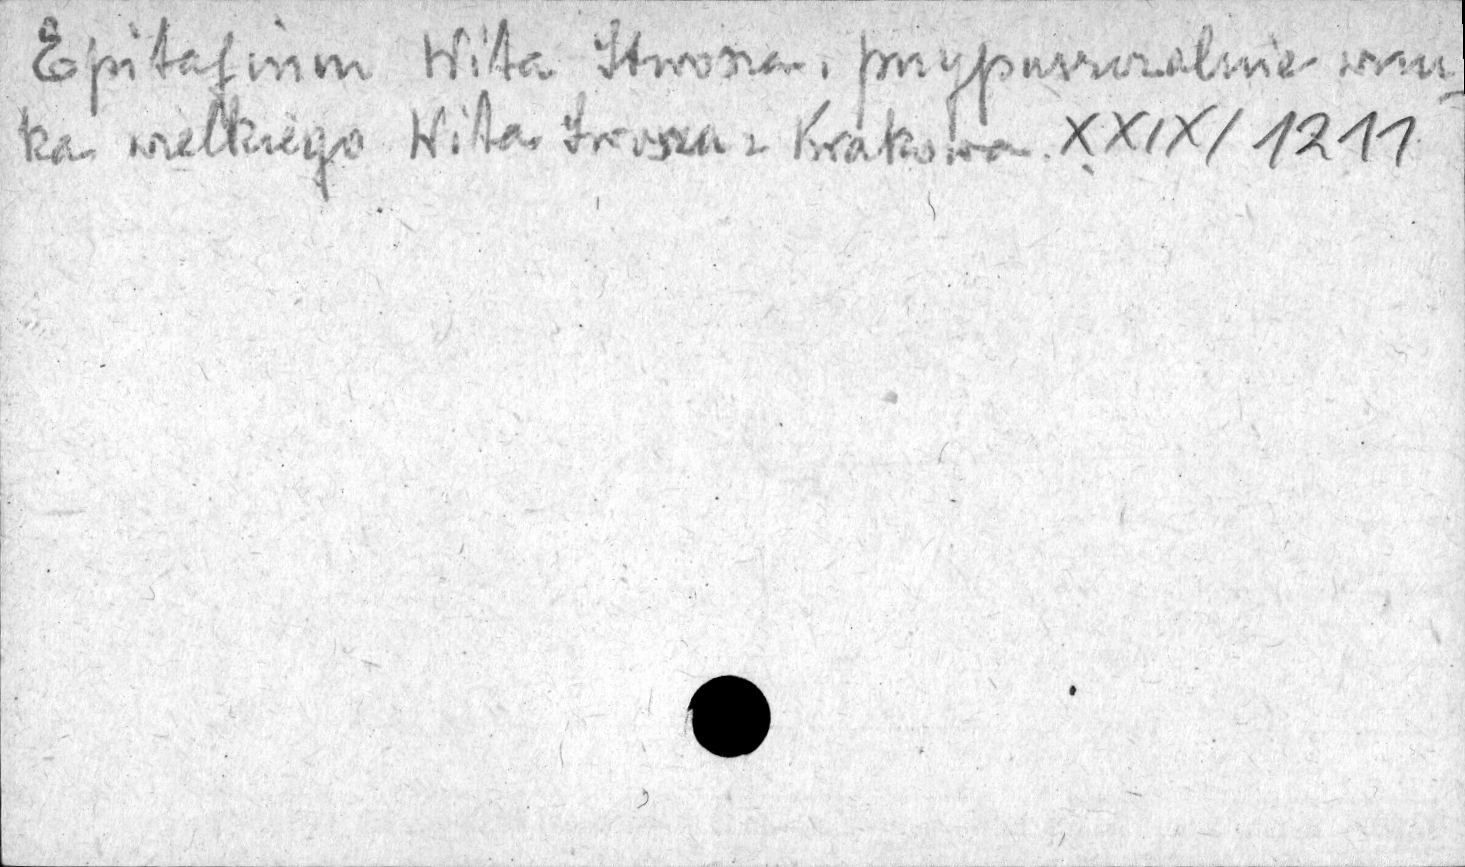 Epitafium Wita Stwosza, przypuszczalnie wnu-
ka wielkiego Wita Stwosza z Krakowa. XXIX/1211